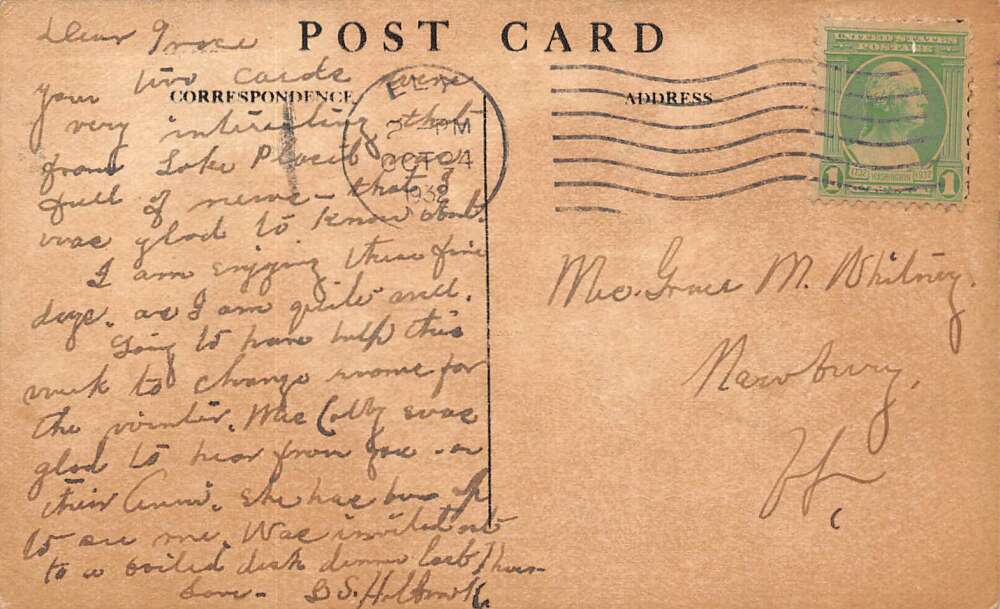 POST CARD
CORRESPONDENCE
ADDRESS
Dear Grace
your two cards were
very interesting - that
from Lake Placid was
full of news - that I
was glad to know about.
I am enjoying these fine
days. as I am quite well.
Going to have help this
week to change rooms for
the winter. Mrs Colby was
glad to hear from you - on
their Anni. She has been up
to see me. Was invited out
to a boiled dish dinner last Thurs-
Love - S. Holbrook
ELY
PM
OCT 4
193
UNITED STATES
POSTAGE
1732 WASHINGTON 1932
1 1
Mrs. Grace M. Whitney.
Newbury,
Vt